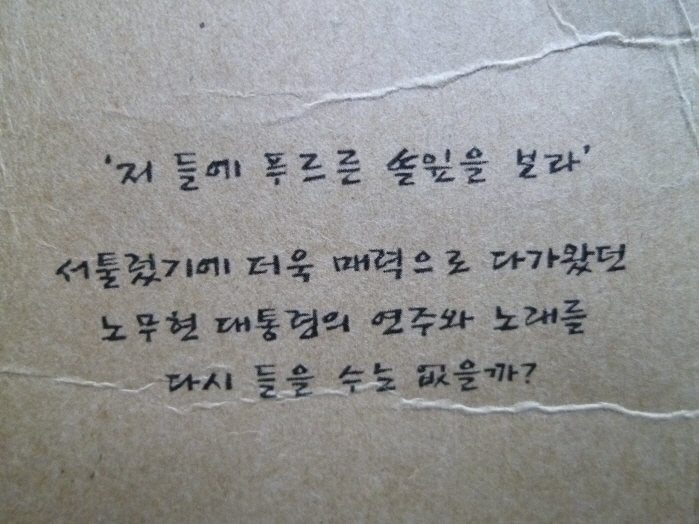 '저 들에 푸르른 솔잎을 보라'
서툴렀기에 더욱 매력으로 다가왔던
노무현 대통령의 연주와 노래를
다시 들을 수는 없을까?